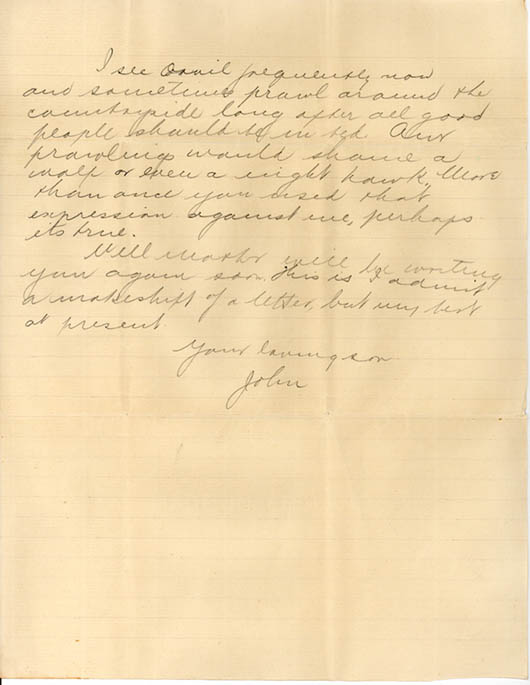 I see Orvil frequently now
and sometimes prawl around the
countryside long after all good
people should be in bed. Our
prawlings would shame a
wolf or even a night hawk. More
than once you used that
expression against me, perhaps
its true.
Well will be writing
you again soon. This is I admit
a makeshift of a letter, but my best
at present
Your loving son
John